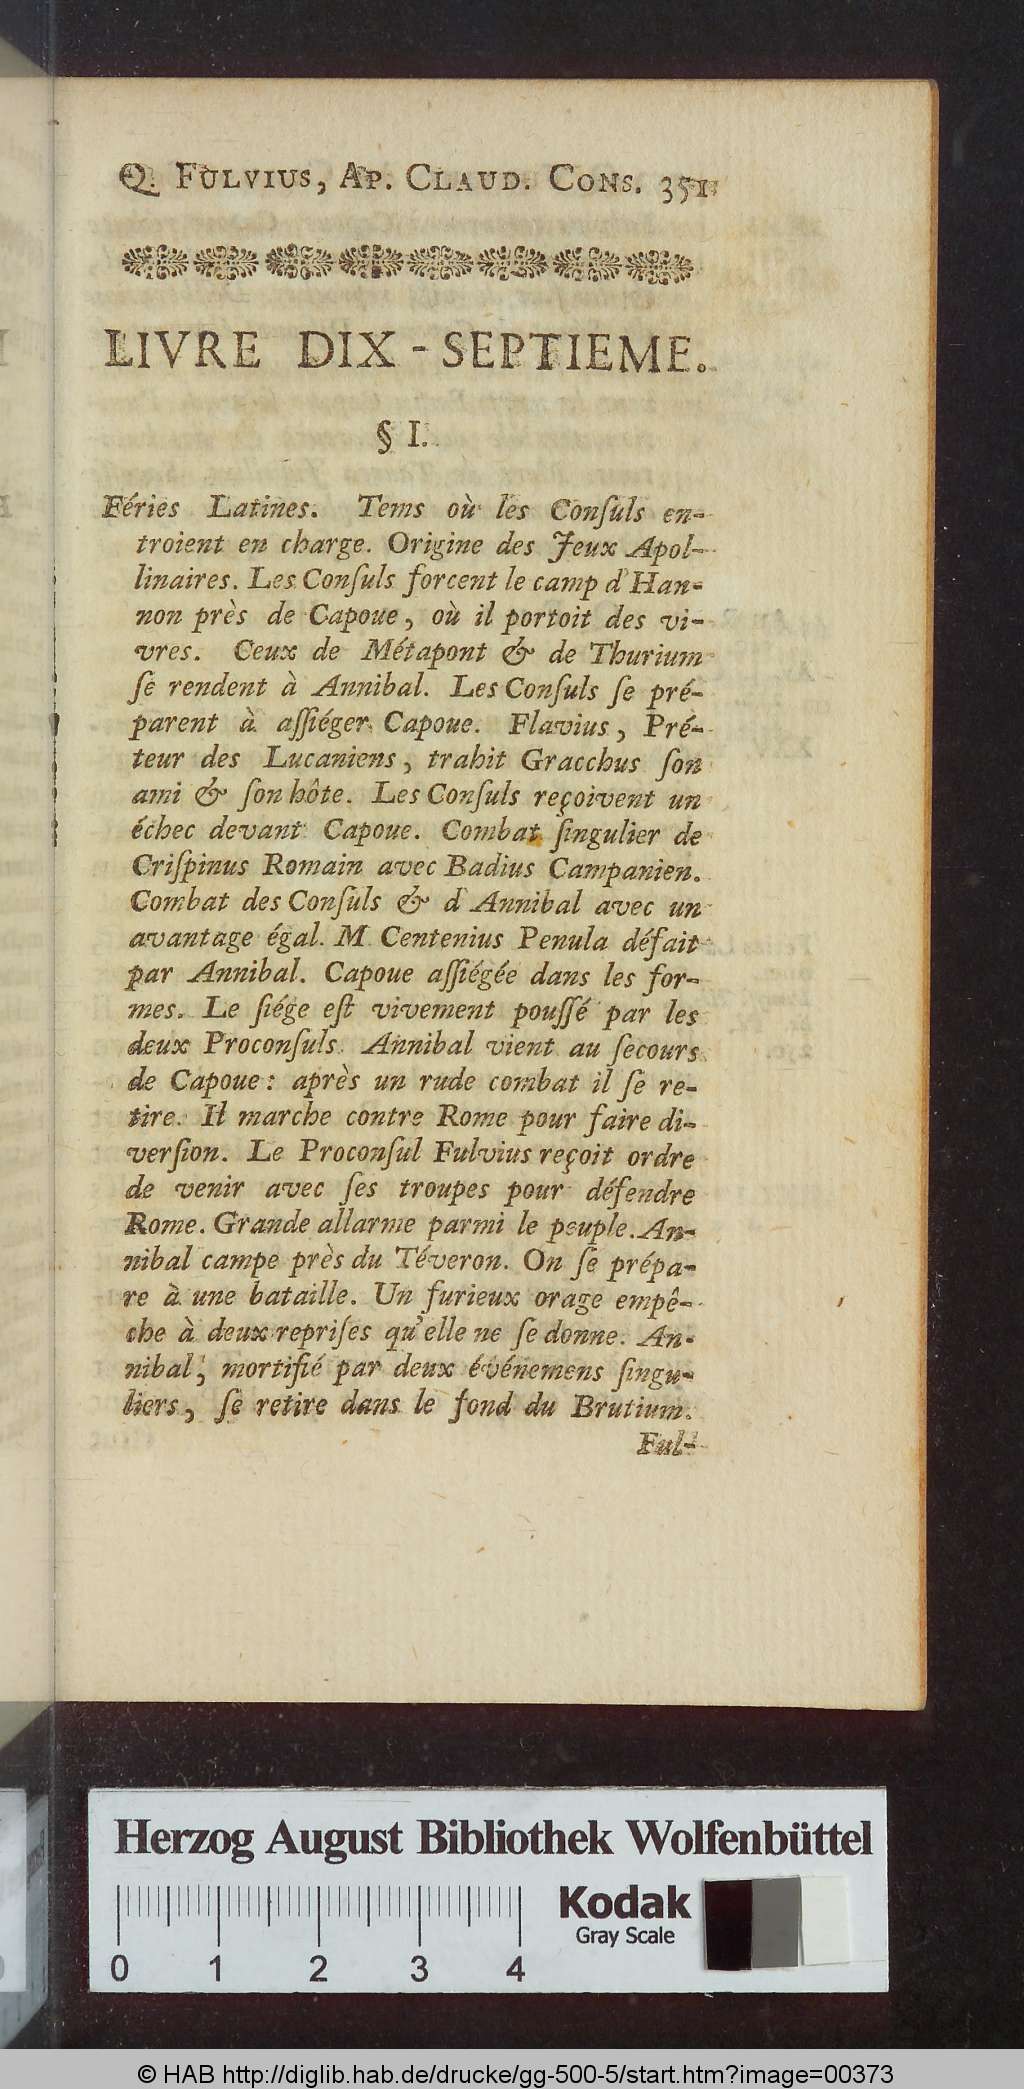 Q. FULVIUS, AP. CLAUD. CONS. 351
LIVRE DIX-SEPTIEME.
§ I.
Féries Latines. Tems où les Conſuls en-
troient en charge. Origine des Jeux Apol-
linaires. Les Conſuls forcent le camp d'Han-
non près de Capoue, où il portoit des vi-
vres. Ceux de Métapont & de Thurium
ſe rendent à Annibal. Les Conſuls ſe pré-
parent à aſſiéger Capoue. Flavius, Pré-
teur des Lucaniens, trahit Gracchus ſon
ami & ſon hôte. Les Conſuls reçoivent un
échec devant Capoue. Combat ſingulier de
Criſpinus Romain avec Badius Campanien.
Combat des Conſuls & d'Annibal avec un
avantage égal. M Centenius Penula défait
par Annibal. Capoue aſſiégée dans les for-
mes. Le ſiége eſt vivement pouſſé par les
deux Proconſuls. Annibal vient au ſecours
de Capoue: après un rude combat il ſe re-
tire. Il marche contre Rome pour faire di-
verſion. Le Proconſul Fulvius reçoit ordre
de venir avec ſes troupes pour défendre
Rome. Grande allarme parmi le peuple. An-
nibal campe près du Téveron. On ſe prépa-
re à une bataille. Un furieux orage empê-
che à deux repriſes qu'elle ne ſe donne. An-
nibal, mortifié par deux événemens ſingu-
liers, ſe retire dans le fond du Brutium.
Ful-
Herzog August Bibliothek Wolfenbüttel
Kodak
Gray Scale
0 1 2 3 4
© HAB http://diglib.hab.de/drucke/gg-500-5/start.htm?image=00373